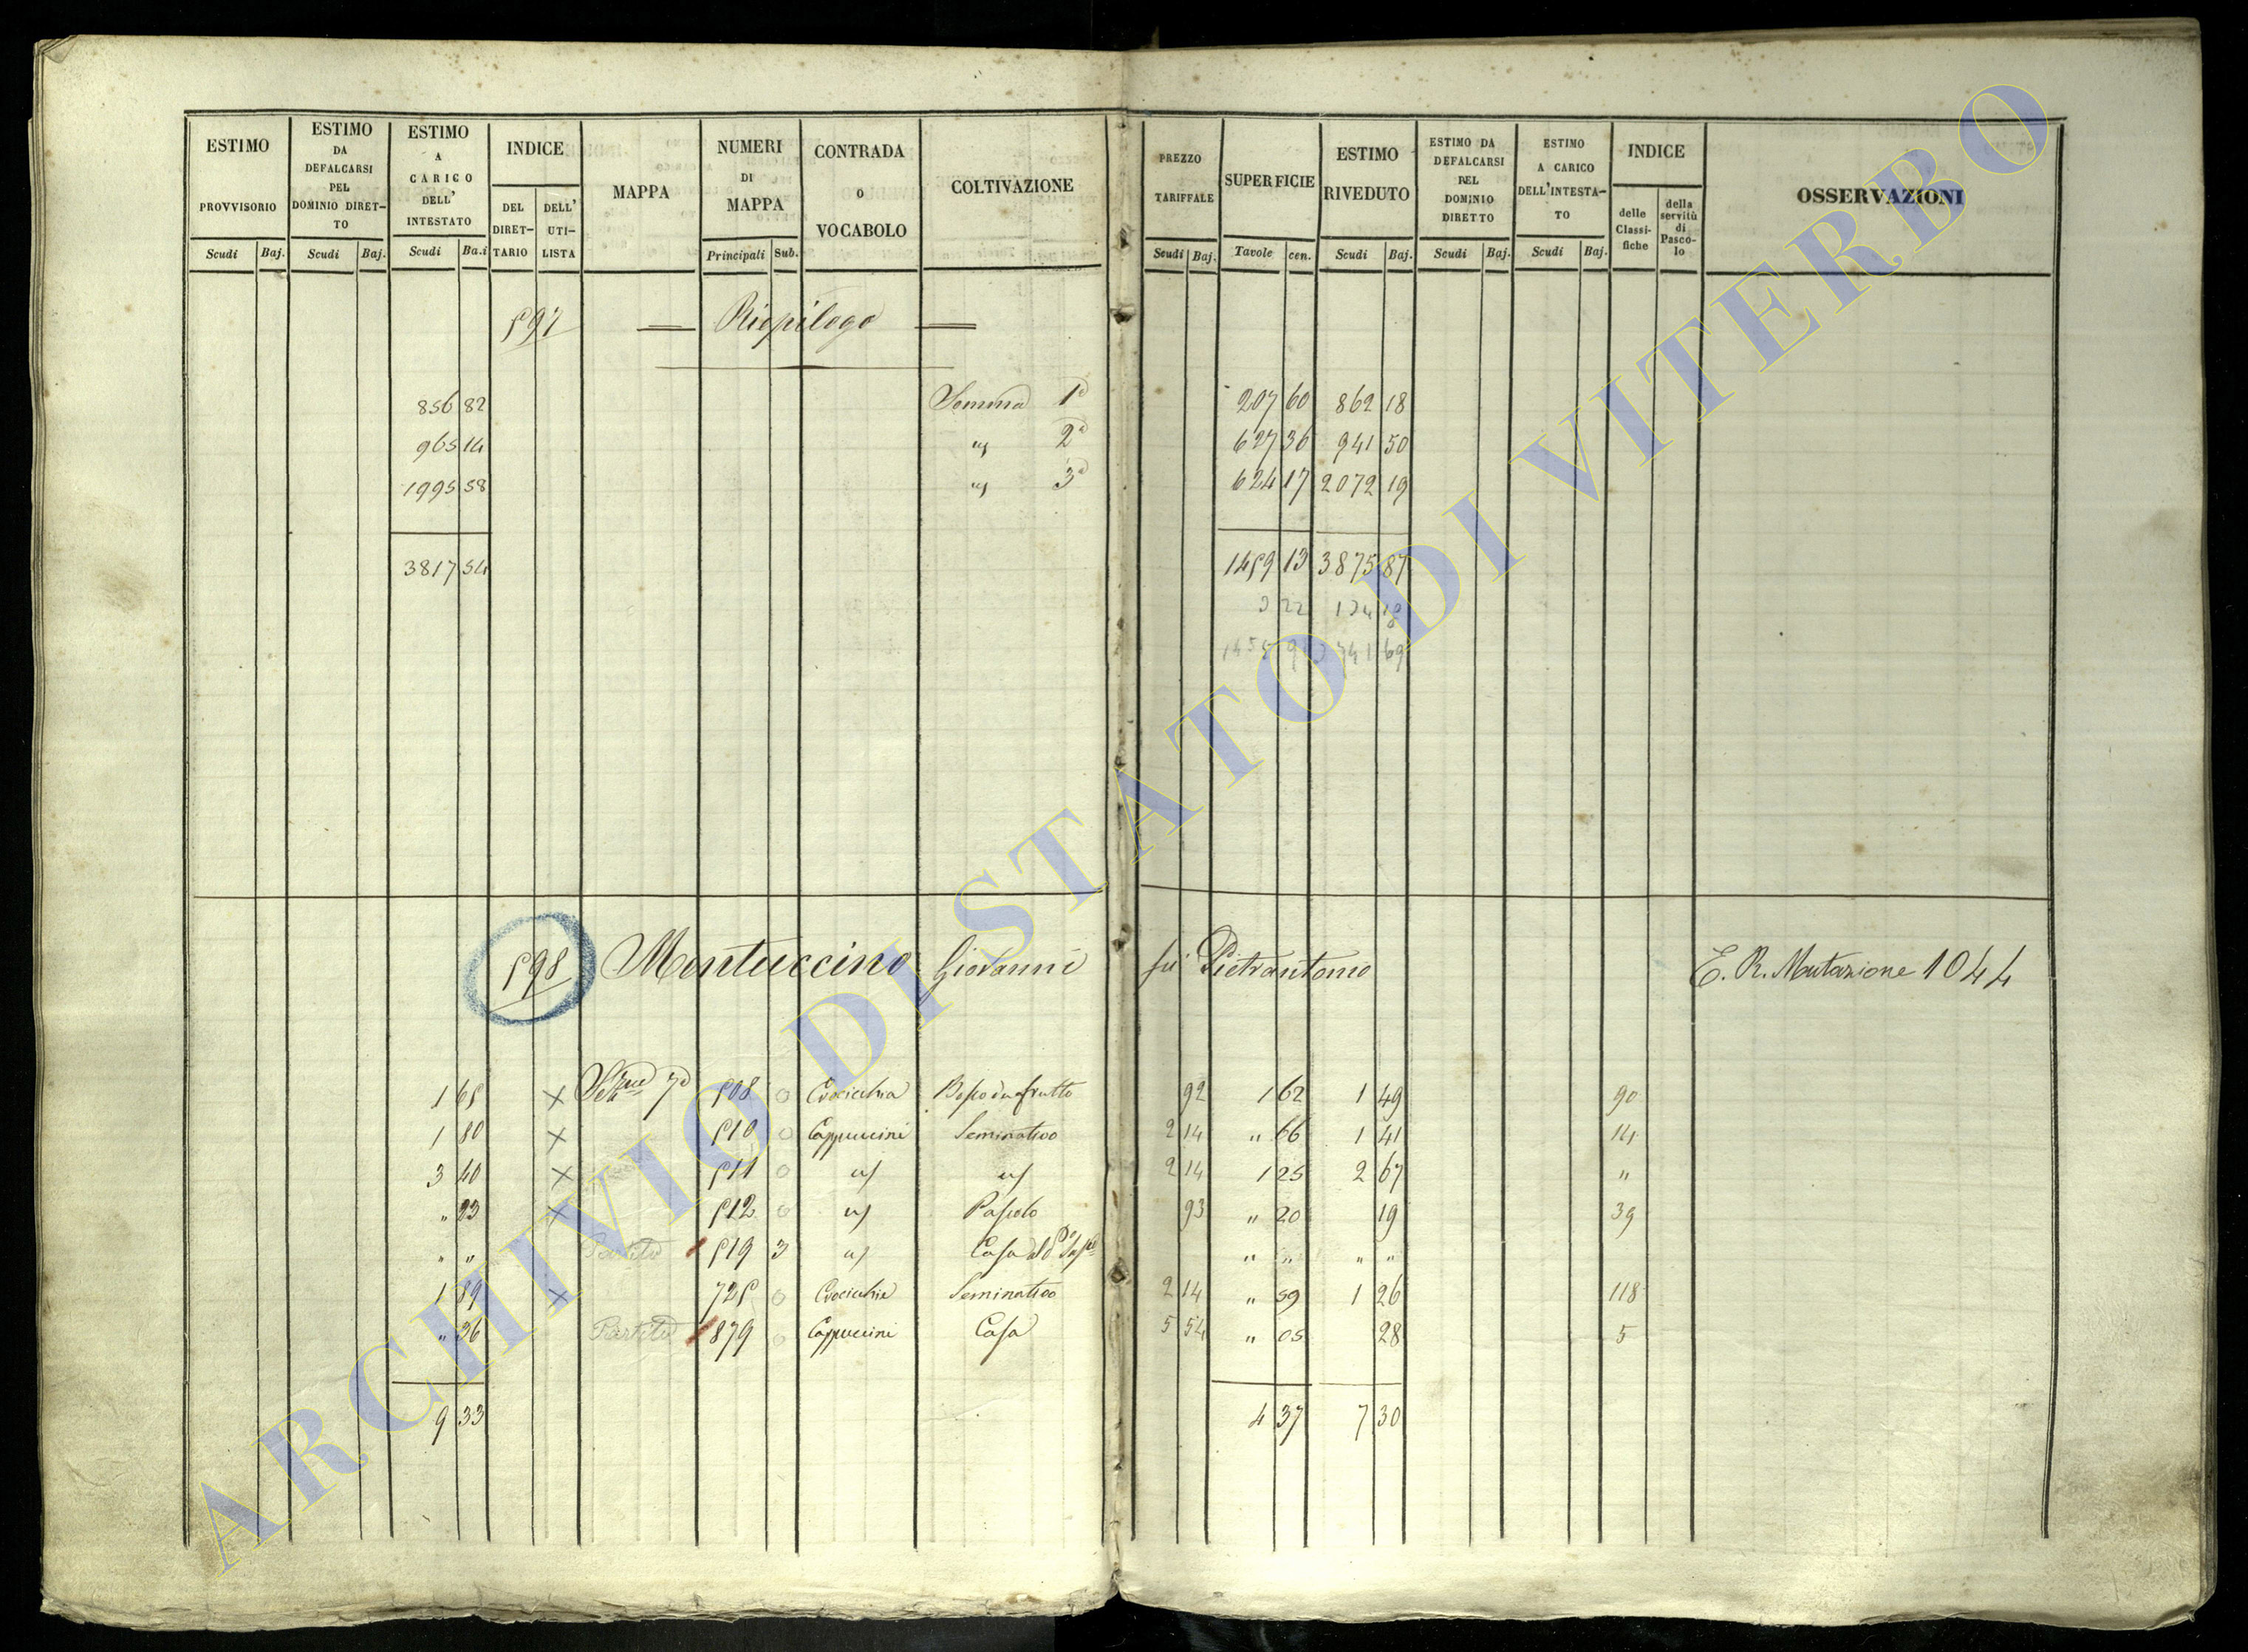 ESTIMO PROVVISORIO Scudi Baj.
ESTIMO DA DEFALCARSI PEL DOMINIO DIRET-TO Scudi Baj.
ESTIMO A CARICO DELL' INTESTATO Scudi Ba.i
INDICE DEL DIRET-TARIO DELL' UTI-LISTA
MAPPA
NUMERI DI MAPPA Principali Sub.
CONTRADA O VOCABOLO
COLTIVAZIONE
PREZZO TARIFFALE Scudi Baj.
SUPERFICIE Tavole cen.
ESTIMO RIVEDUTO Scudi Baj.
ESTIMO DA DEFALCARSI PEL DOMINIO DIRETTO Scudi Baj.
ESTIMO A CARICO DELL'INTESTA-TO Scudi Baj.
INDICE delle Classi-fiche della servitù di Pasco-lo
OSSERVAZIONI
597 Riepilogo
856 82 Somma 1a 207 60 862 18
965 14 " 2a 627 36 941 50
1995 58 " 3a 624 17 2072 19
3817 54 1459 13 3875 87
3 22 134 18
69
598 Mentuccino Giovanni fu Pietrantonio E. R. Mutazione 1044
1 65 × Sezne 7a 508 0 Crocicchia Bosco da frutto 92 1 62 1 49 90
1 80 × 510 0 Cappuccini Seminativo 2 14 " 66 1 41 14
3 40 × 511 0 " " 2 14 1 25 2 67 "
" 23 × 512 0 " Pascolo 93 " 20 19 39
" " Partito 519 3 " Casa " " " "
1 89 × 725 0 Crocicchia Seminativo 2 14 " 59 1 26 118
" 36 Partito 879 0 Cappuccini Casa 5 54 " 05 28 5
9 33 4 37 7 30
ARCHIVIO DI STATO DI VITERBO